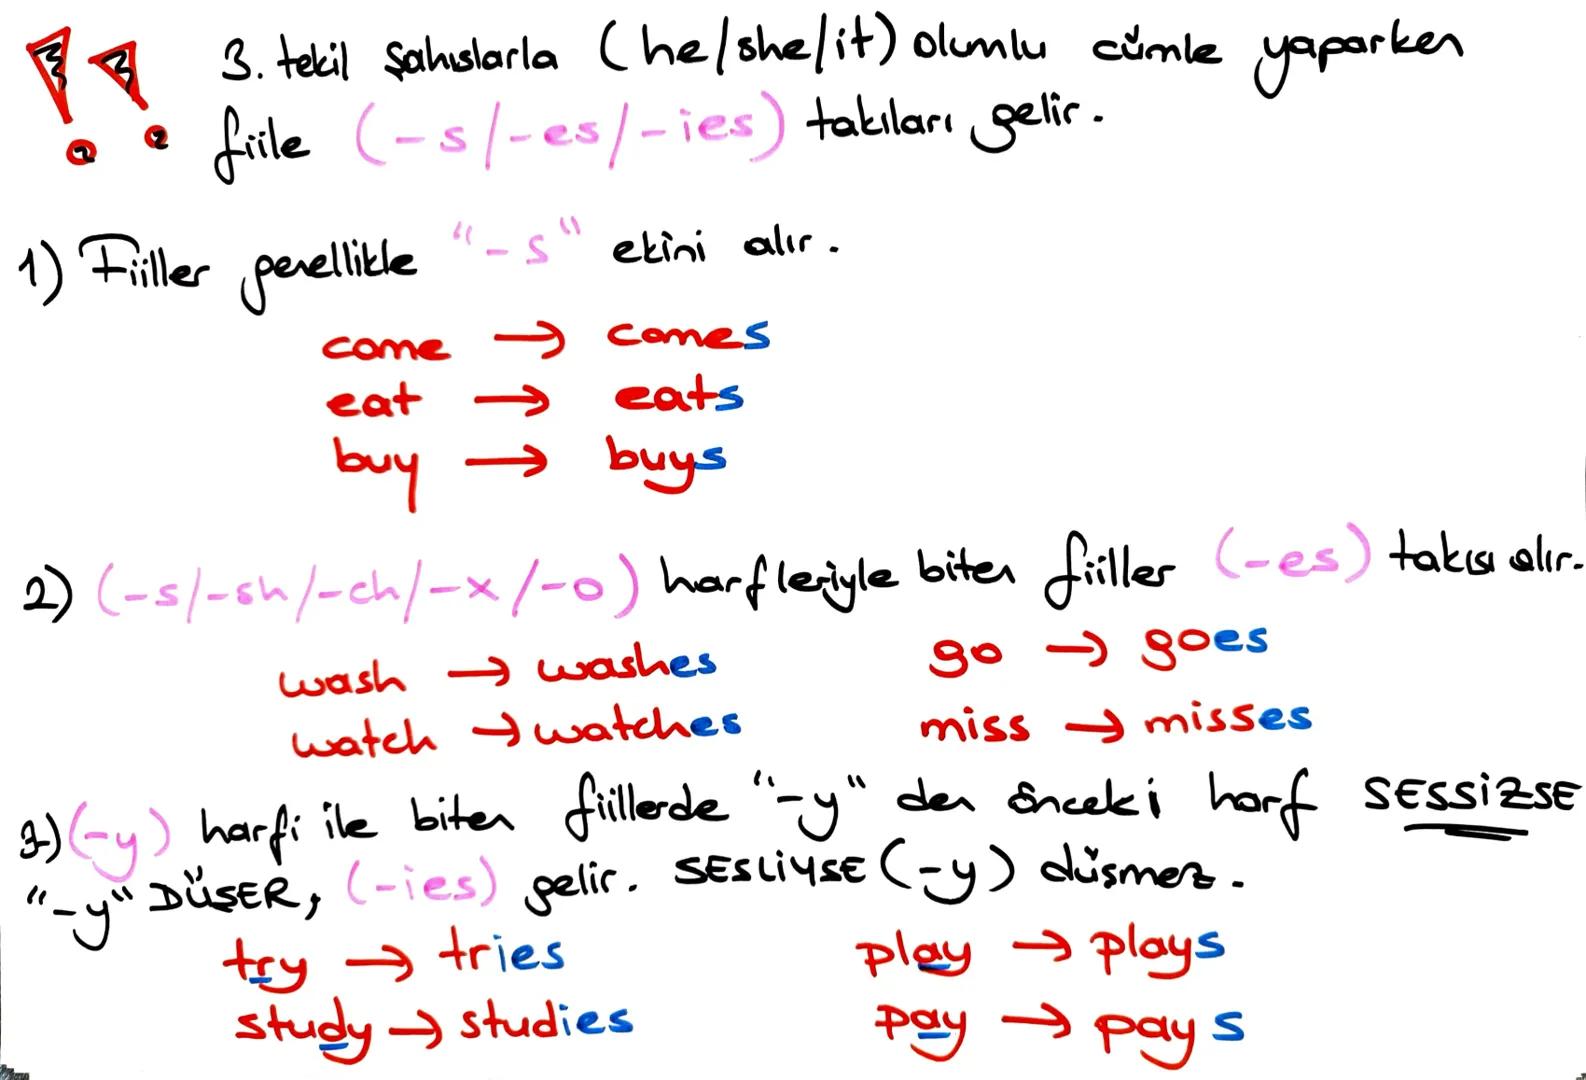 3. tekil şahıslarla (he/she/it) olumlu cümle yaparken
fiile (-s/-es/-ies) takıları gelir.
1) Fiiller genellikle "-s" ekini alır.
come → comes
eat → eats
buy → buys
2) (-s/-sh/-ch/-x/-o) harfleriyle biten fiiller (-es) takısı alır.
wash → washes go → goes
watch → watches miss → misses
3) (-y) harfi ile biten fiillerde "-y" den önceki harf SESSİZSE
"-y" DÜŞER, (-ies) gelir. SESLİYSE (-y) düşmez.
try → tries play → plays
study → studies pay → pays